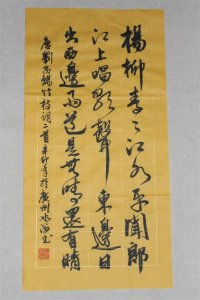 楊柳青々江水平聞郎
江上唱歌聲東邊日
出西邊雨道是無晴還有晴
唐劉禹錫竹枝詞二首辛卯年於廣州